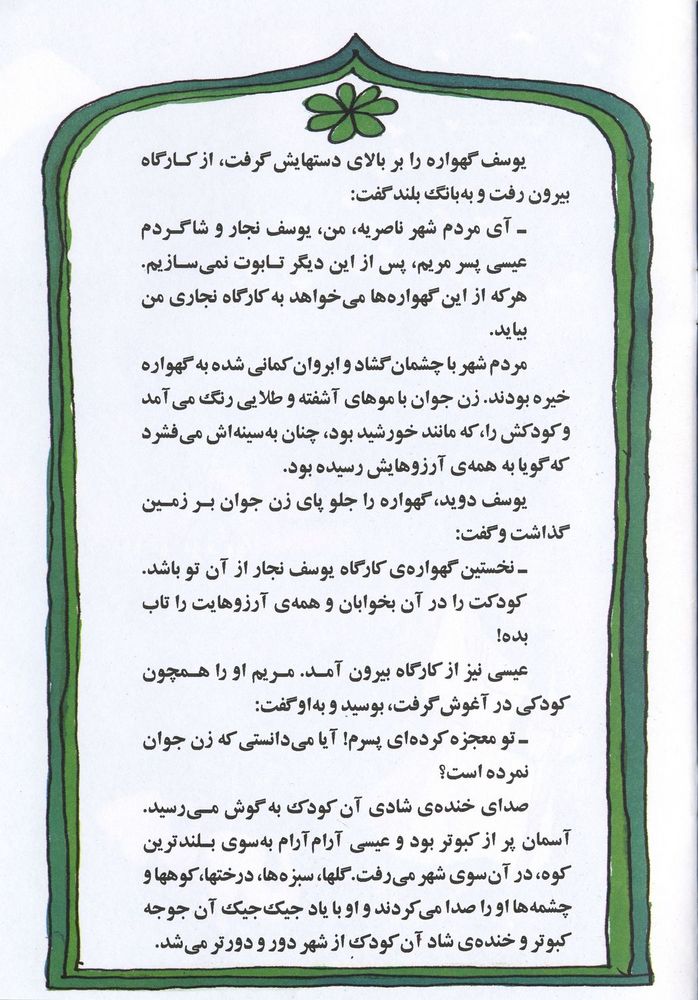 یوسف گهواره را بر بالای دستهایش گرفت، از کارگاه
بیرون رفت و به‌بانگ بلند گفت:
ـ آی مردم شهر ناصریه، من، یوسف نجار و شاگردم
عیسی پسر مریم، پس از این دیگر تابوت نمی‌سازیم.
هرکه از این گهواره‌ها می‌خواهد به کارگاه نجاری من
بیاید.
مردم شهر با چشمان گشاد و ابروان کمانی شده به گهواره
خیره بودند. زن جوان با موهای آشفته و طلایی رنگ می‌آمد
و کودکش را، که مانند خورشید بود، چنان به‌سینه‌اش می‌فشرد
که گویا به همه‌ی آرزوهایش رسیده بود.
یوسف دوید، گهواره را جلو پای زن جوان بر زمین
گذاشت و گفت:
ـ نخستین گهواره‌ی کارگاه یوسف نجار از آن تو باشد.
کودکت را در آن بخوابان و همه‌ی آرزوهایت را تاب
بده!
عیسی نیز از کارگاه بیرون آمد. مریم او را همچون
کودکی در آغوش گرفت، بوسید و به‌او گفت:
ـ تو معجزه کرده‌ای پسرم! آیا می‌دانستی که زن جوان
نمرده است؟
صدای خنده‌ی شادی آن کودک به گوش می‌رسید.
آسمان پر از کبوتر بود و عیسی آرام‌آرام به‌سوی بلندترین
کوه، در آن‌سوی شهر می‌رفت. گلها، سبزه‌ها، درختها، کوهها و
چشمه‌ها او را صدا می‌کردند و او با یاد جیک‌جیک آن جوجه
کبوتر و خنده‌ی شاد آن کودک از شهر دور و دورتر می‌شد.